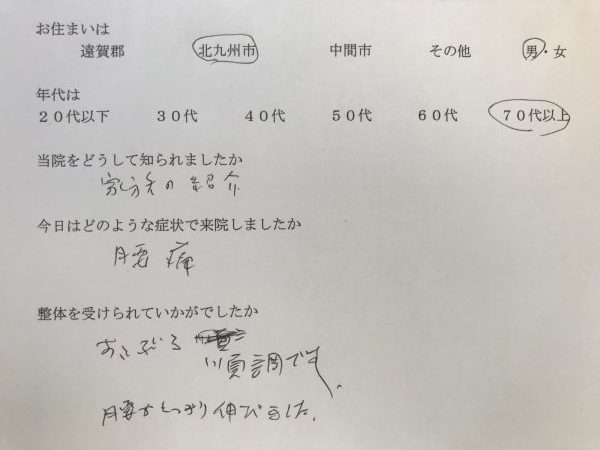 お住まいは
遠賀郡 北九州市 中間市 その他 男・女
年代は
20代以下 30代 40代 50代 60代 70代以上
当院をどうして知られましたか
家族の紹介
今日はどのような症状で来院しましたか
腰痛
整体を受けられていかがでしたか
順調です、
腰がしっかり伸びました。